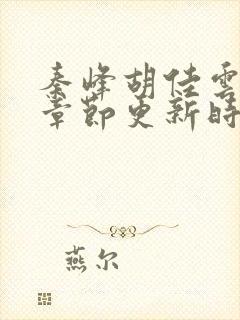 秦峰胡佳雲
章節更新時
燕尔